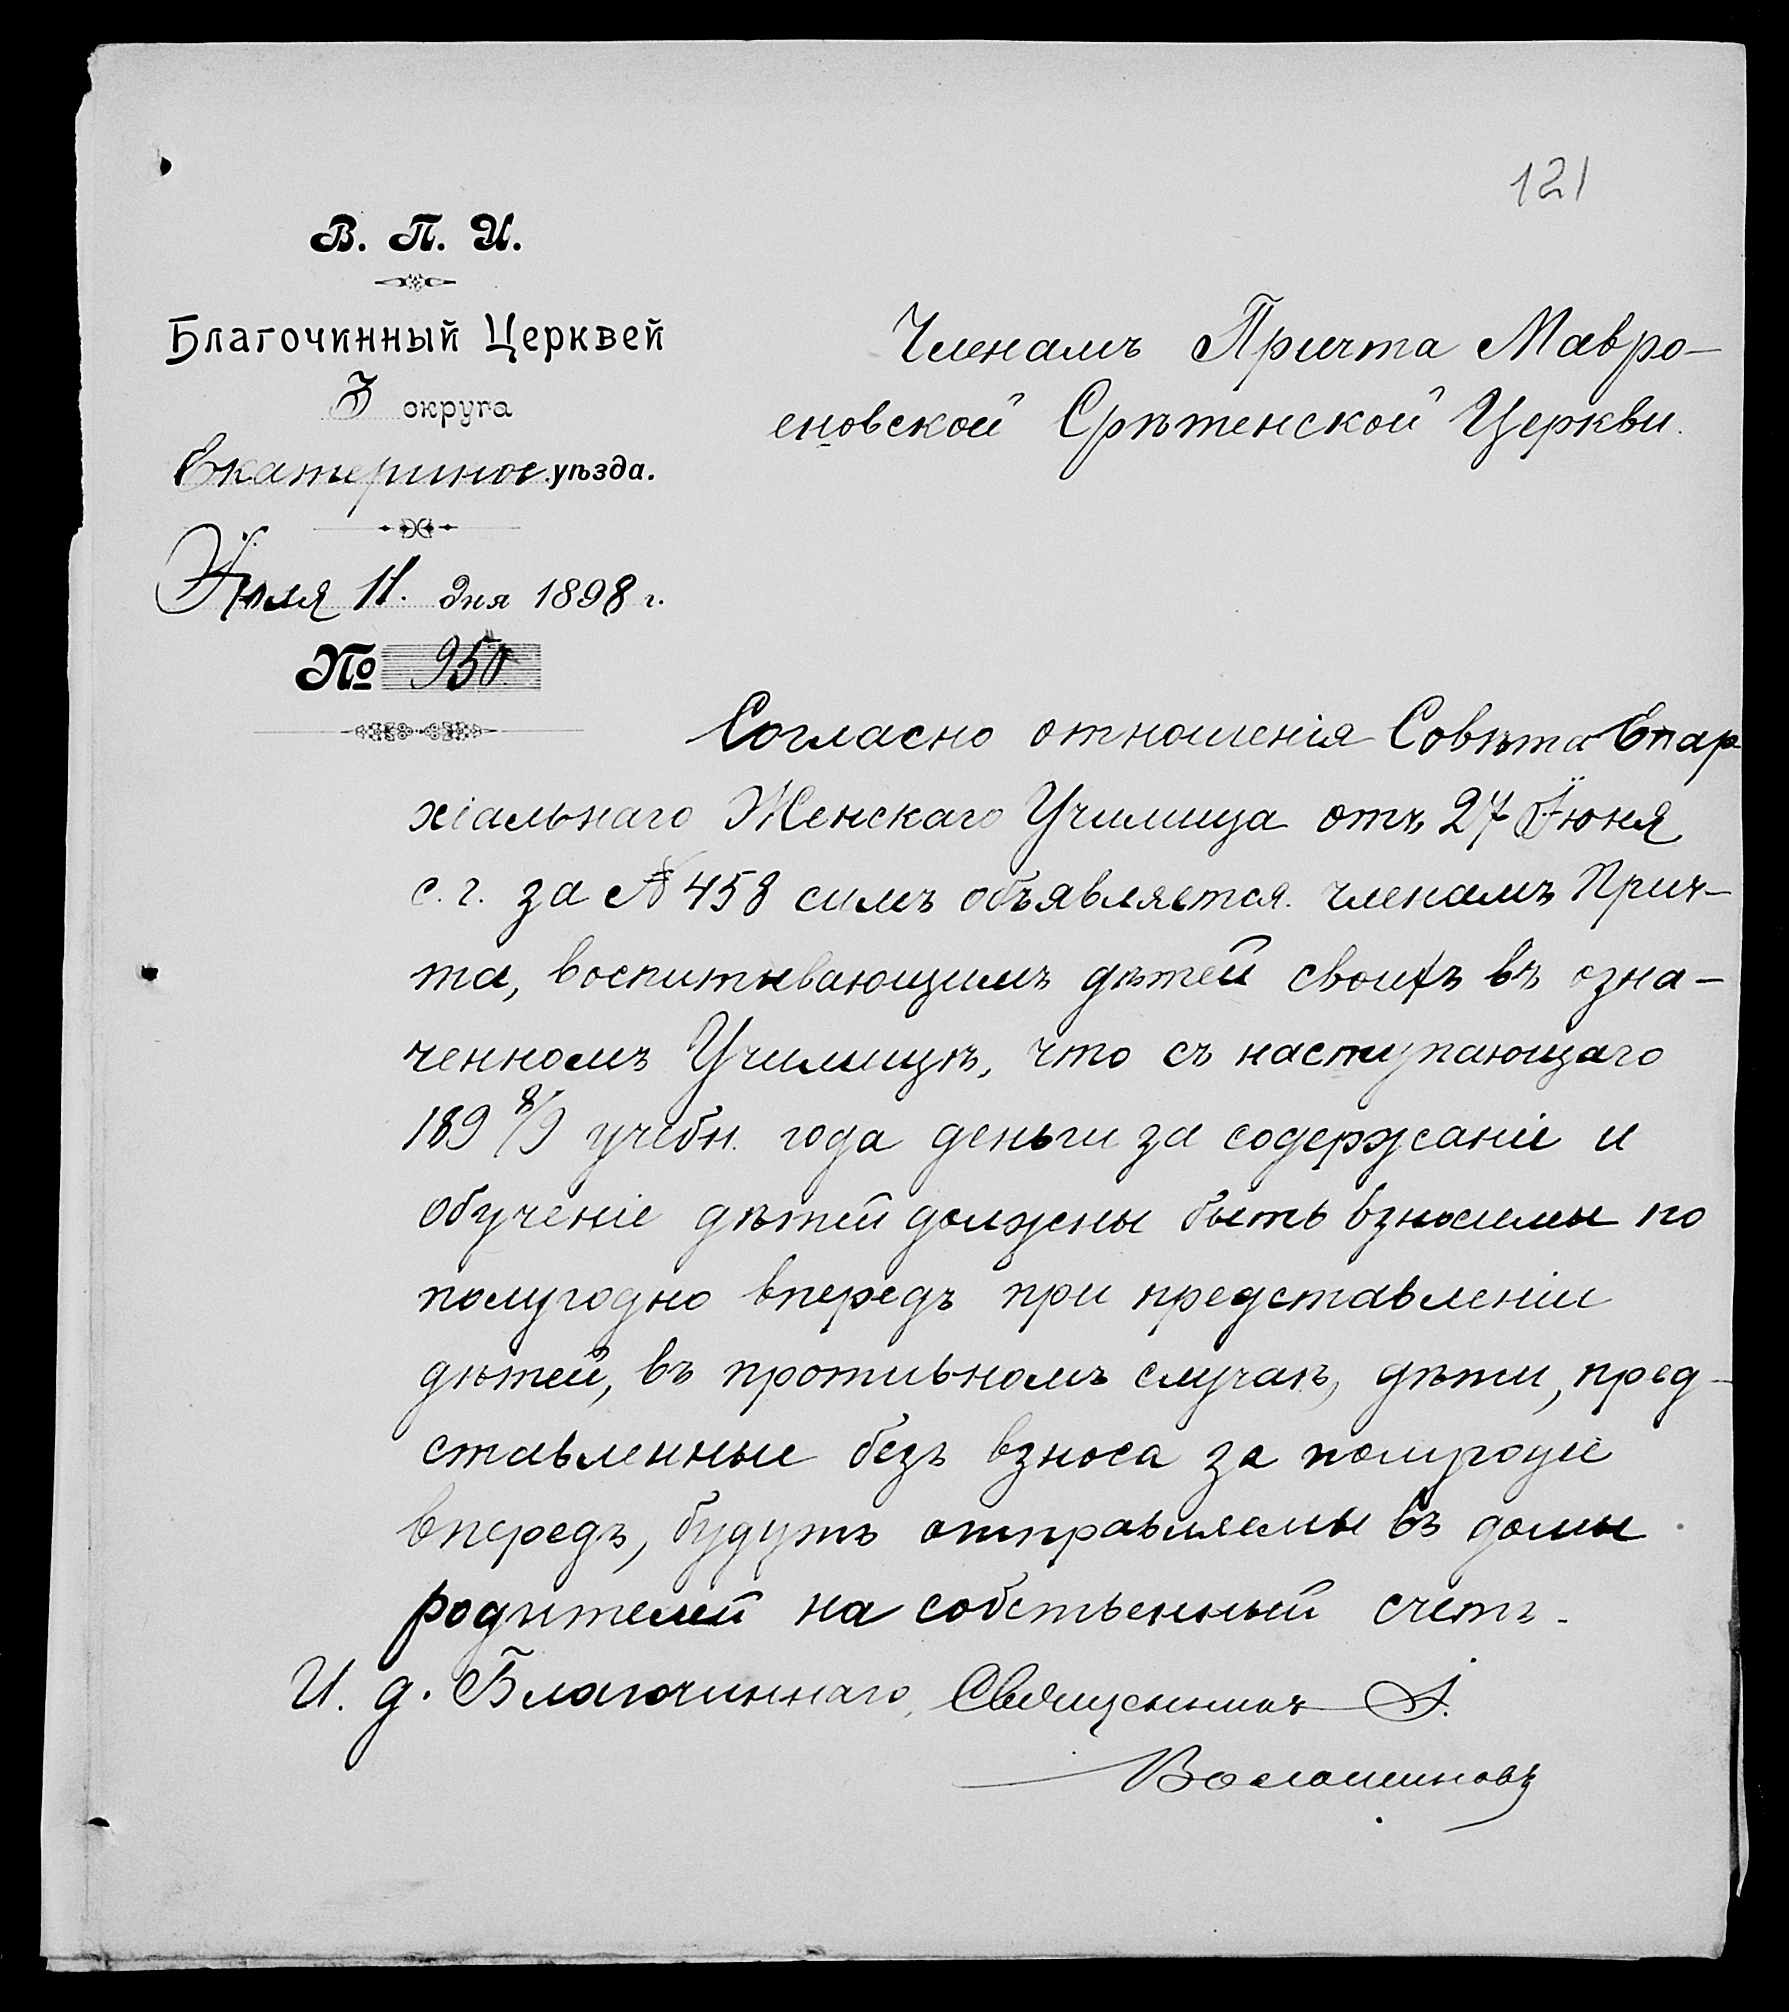 121
В. П. И.
Благочинный Церквей
3 округа
Екатеринос. уѣзда.
Іюля 11. дня 1898 г.
№ 950.
Членамъ Причта Мавро-
еновской Срѣтенской Церкви.
Согласно отношенія Совѣта Епар
хіальнаго Женскаго Училища отъ 27 Іюня
с. г. за № 458 симъ объявляется членамъ Прич-
та, воспитывающимъ дѣтей своихъ въ озна-
ченномъ Училищѣ, что съ наступающаго
189 8/9 учебн. года деньги за содержаніе и
обученіе дѣтей должны быть взносимы по
полугодно впередъ при представленіи
дѣтей, въ противномъ случаѣ, дѣти, пред-
ставленные безъ взноса за полугодіе
впередъ, будутъ отправляемы въ домы
родителей на собственный счетъ.
И. д. Благочиннаго, Священникъ І.
Волошиновъ